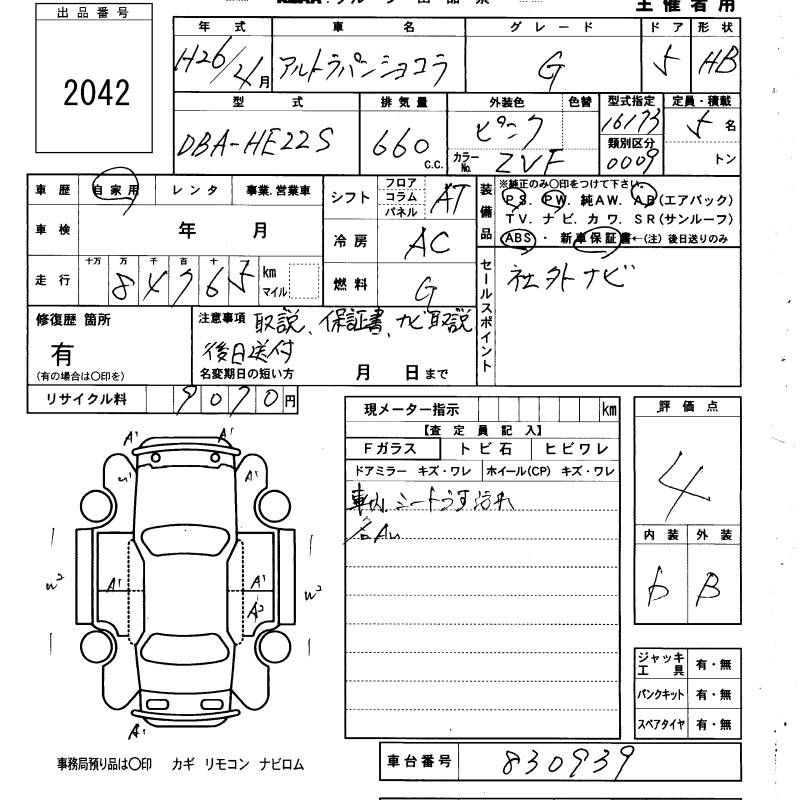 主催者用
出品番号
2042
年式 車名 グレード ドア 形状
H26/4月 アルトラパンショコラ G 5 HB
型式 排気量 外装色 色替 型式指定 定員・積載
DBA-HE22S 660 c.c. ピンク 16173 5名
カラーNo. ZVF 類別区分 0009 トン
車歴 自家用 レンタ 事業.営業車
シフト フロア コラム パネル AT
装備品 ※純正のみ〇印をつけて下さい。
PS. PW. 純AW. AB(エアバック)
TV. ナビ. カワ. SR(サンルーフ)
ABS ・ 新車保証書←(注) 後日送りのみ
車検 年 月
冷房 AC
走行 十万 万 千 百 十 km マイル
84765
燃料 G
セールスポイント
社外ナビ
修復歴 箇所
有
(有の場合は〇印を)
注意事項 取説、保証書、ナビ取説
後日送付
名変期日の短い方 月 日まで
リサイクル料 9070円
現メーター指示 km
【査定員記入】
Fガラス トビ石 ヒビワレ
ドアミラー キズ・ワレ ホイール(CP) キズ・ワレ
車内シートうす汚れ
各AU
評価点
4
内装 外装
b B
A' A'
U' A'
W2 A' A' W2
A2
A'
ジャッキ工具 有・無
パンクキット 有・無
スペアタイヤ 有・無
事務局預り品は〇印 カギ リモコン ナビロム
車台番号 830939